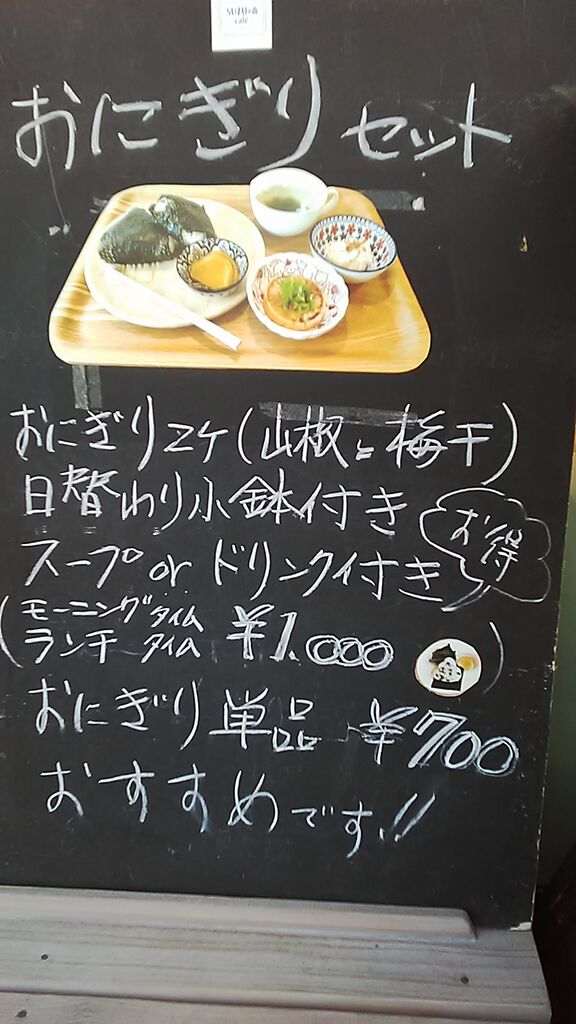 SUZUの森
café
おにぎりセット
おにぎり2ケ(山椒と梅干)
日替わり小鉢付き
スープorドリンク付き
お得
(モーニングタイム
ランチタイム ¥1.000)
おにぎり単品 ¥700
おすすめです!!